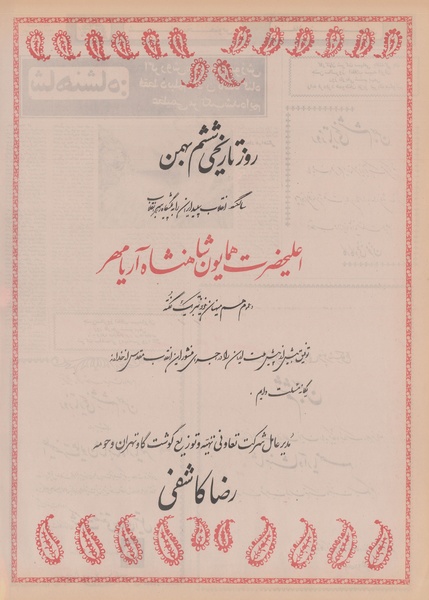 روز تاریخی ششم بهمن
سالگرد انقلاب سپید ایران را به پیشگاه رهبر انقلاب
اعلیحضرت همایون شاهنشاه آریامهر
و عموم هم میهنان عزیز تبریک گفته
توفیق بیش از پیش ملت ایران را در اجرای منشور این انقلاب مقدس از خداوند
یگانه مسئلت دارم .
مدیر عامل شرکت تعاونی تهیه و توزیع گوشت گاو تهران و حومه
رضا کاشفی